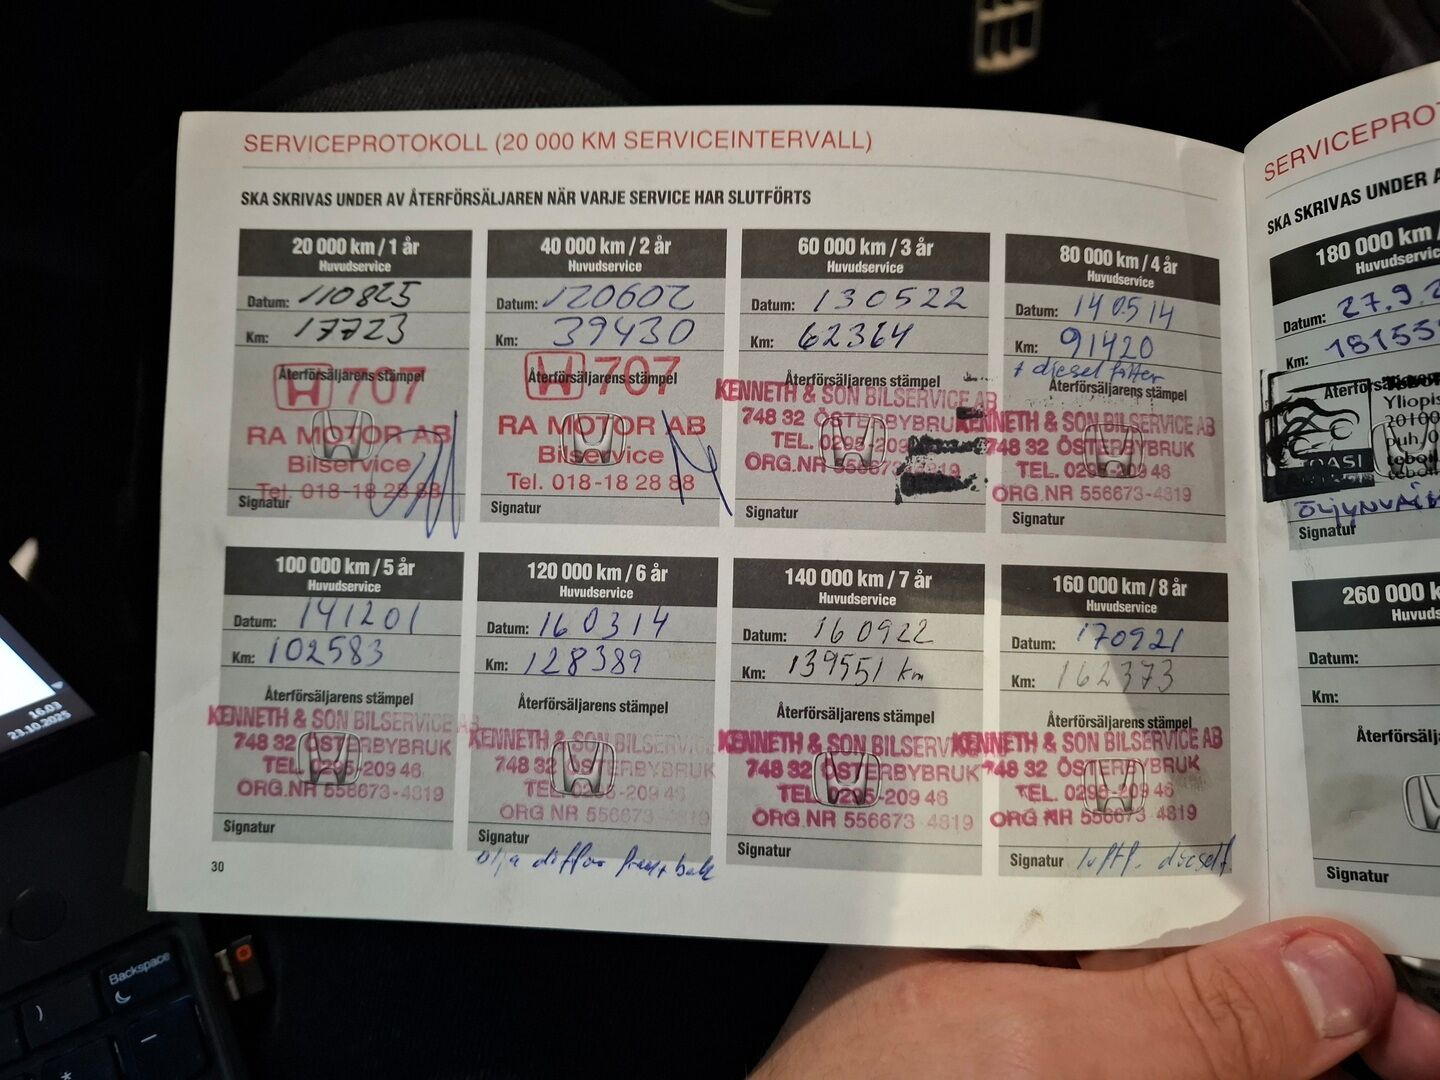 SERVICEPROTOKOLL (20 000 KM SERVICEINTERVALL)
SKA SKRIVAS UNDER AV ÅTERFÖRSÄLJAREN NÄR VARJE SERVICE HAR SLUTFÖRTS
20 000 km / 1 år
Huvudservice
Datum: 110825
Km: 17723
Återförsäljarens stämpel
H 707
RA MOTOR AB
Bilservice
Tel. 018-18 28 88
Signatur
40 000 km / 2 år
Huvudservice
Datum: 120602
Km: 39430
Återförsäljarens stämpel
H 707
RA MOTOR AB
Bilservice
Tel. 018-18 28 88
Signatur
60 000 km / 3 år
Huvudservice
Datum: 130522
Km: 62364
Återförsäljarens stämpel
KENNETH & SON BILSERVICE AB
748 32 ÖSTERBYBRUK
TEL. 0295-209
ORG.NR 556673-4819
Signatur
80 000 km / 4 år
Huvudservice
Datum: 140514
Km: 91420
+ diesel filter
Återförsäljarens stämpel
KENNETH & SON BILSERVICE AB
748 32 ÖSTERBYBRUK
TEL. 0295-209 46
ORG.NR 556673-4819
Signatur
100 000 km / 5 år
Huvudservice
Datum: 141201
Km: 102583
Återförsäljarens stämpel
KENNETH & SON BILSERVICE AB
748 32 ÖSTERBYBRUK
TEL. 0295-209 46
ORG.NR 556673-4819
Signatur
120 000 km / 6 år
Huvudservice
Datum: 160314
Km: 128389
Återförsäljarens stämpel
KENNETH & SON BILSERVICE
748 32 ÖSTERBYBRUK
TEL. 0295-209 46
ORG NR 556673-4819
Signatur
olja diffar fram + bak
140 000 km / 7 år
Huvudservice
Datum: 160922
Km: 139551 km
Återförsäljarens stämpel
KENNETH & SON BILSERVICE
748 32 ÖSTERBYBRUK
TEL. 0295-209 46
ORG.NR 556673-4819
Signatur
160 000 km / 8 år
Huvudservice
Datum: 170921
Km: 162373
Återförsäljarens stämpel
KENNETH & SON BILSERVICE AB
748 32 ÖSTERBYBRUK
TEL. 0295-209 46
ORG NR 556673-4819
Signatur luftf. dieself.
30
SERVICEPRO
SKA SKRIVAS UNDER A
180 000 km /
Huvudservice
Datum: 27.9.2
Km: 18155
Yliopis
20100
puh. 0
OASI
Signatur
260 000 k
Huvuds
Datum:
Km:
Återförsälj
Signatur
16.03
23.10.2025
Backspace
)
*